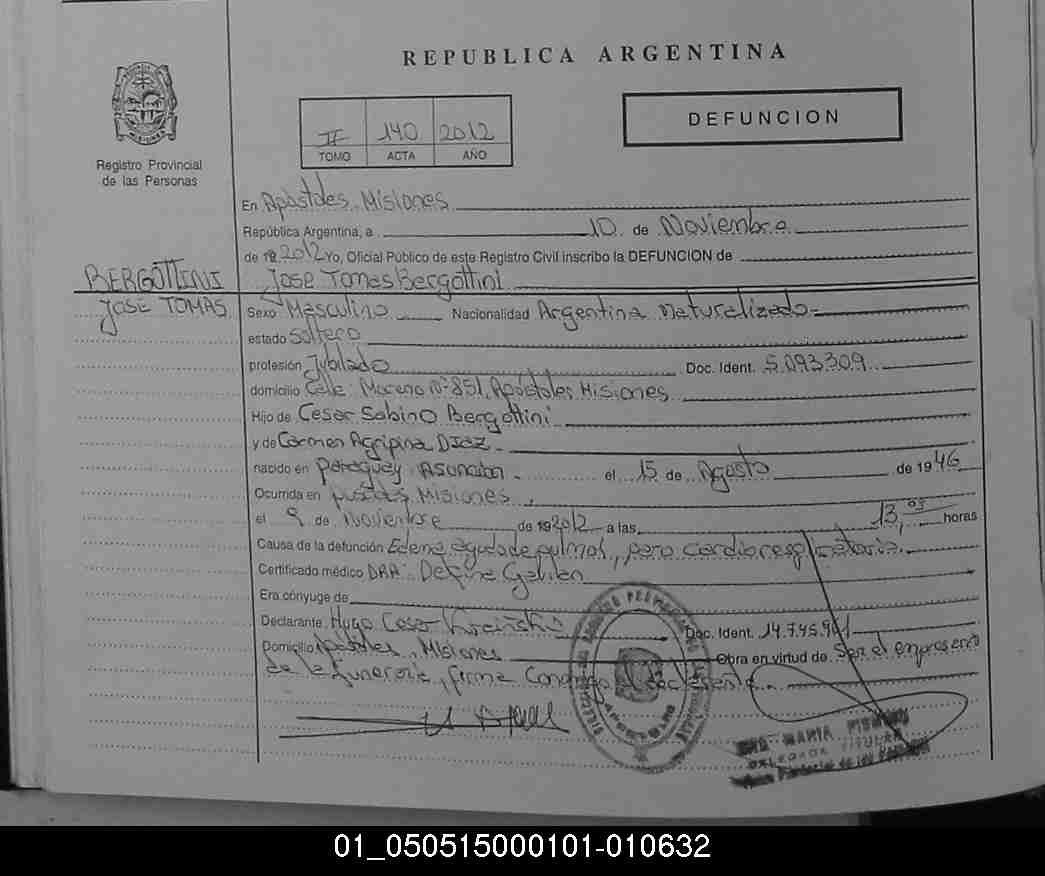 REPUBLICA ARGENTINA
II 140 2012
TOMO ACTA AÑO
DEFUNCION
Registro Provincial
de las Personas
En Apóstoles, Misiones
República Argentina, a 10 de Noviembre
de 19 2012 Yo, Oficial Público de este Registro Civil inscribo la DEFUNCION de
BERGOTTINI Jose Tomas Bergottini
JOSE TOMAS Sexo Masculino Nacionalidad Argentina Naturalizado
estado Soltero
profesión Jubilado Doc. Ident. 5.093.309
domicilio Calle Moreno Nº 851, Apóstoles Misiones
Hijo de Cesar Sabino Bergottini
y de Carmen Agripina Diaz
nacido en Paraguay Asuncion el 15 de Agosto de 1946
Ocurrida en Misiones
el 9 de Noviembre de 19 2012 a las 13,05 horas
Causa de la defunción Edema agudo de pulmon, paro cardiorespiratorio
Certificado médico DRA. Galian
Era cónyuge de
Declarante Hugo Cesar Doc. Ident. 14.745.961
Domicilio Apóstoles, Misiones Obra en virtud de Ser el empresario
de la funeraria, firma Conmigo el declarante
MARIA
DELEGADA TITULAR
01_050515000101-010632